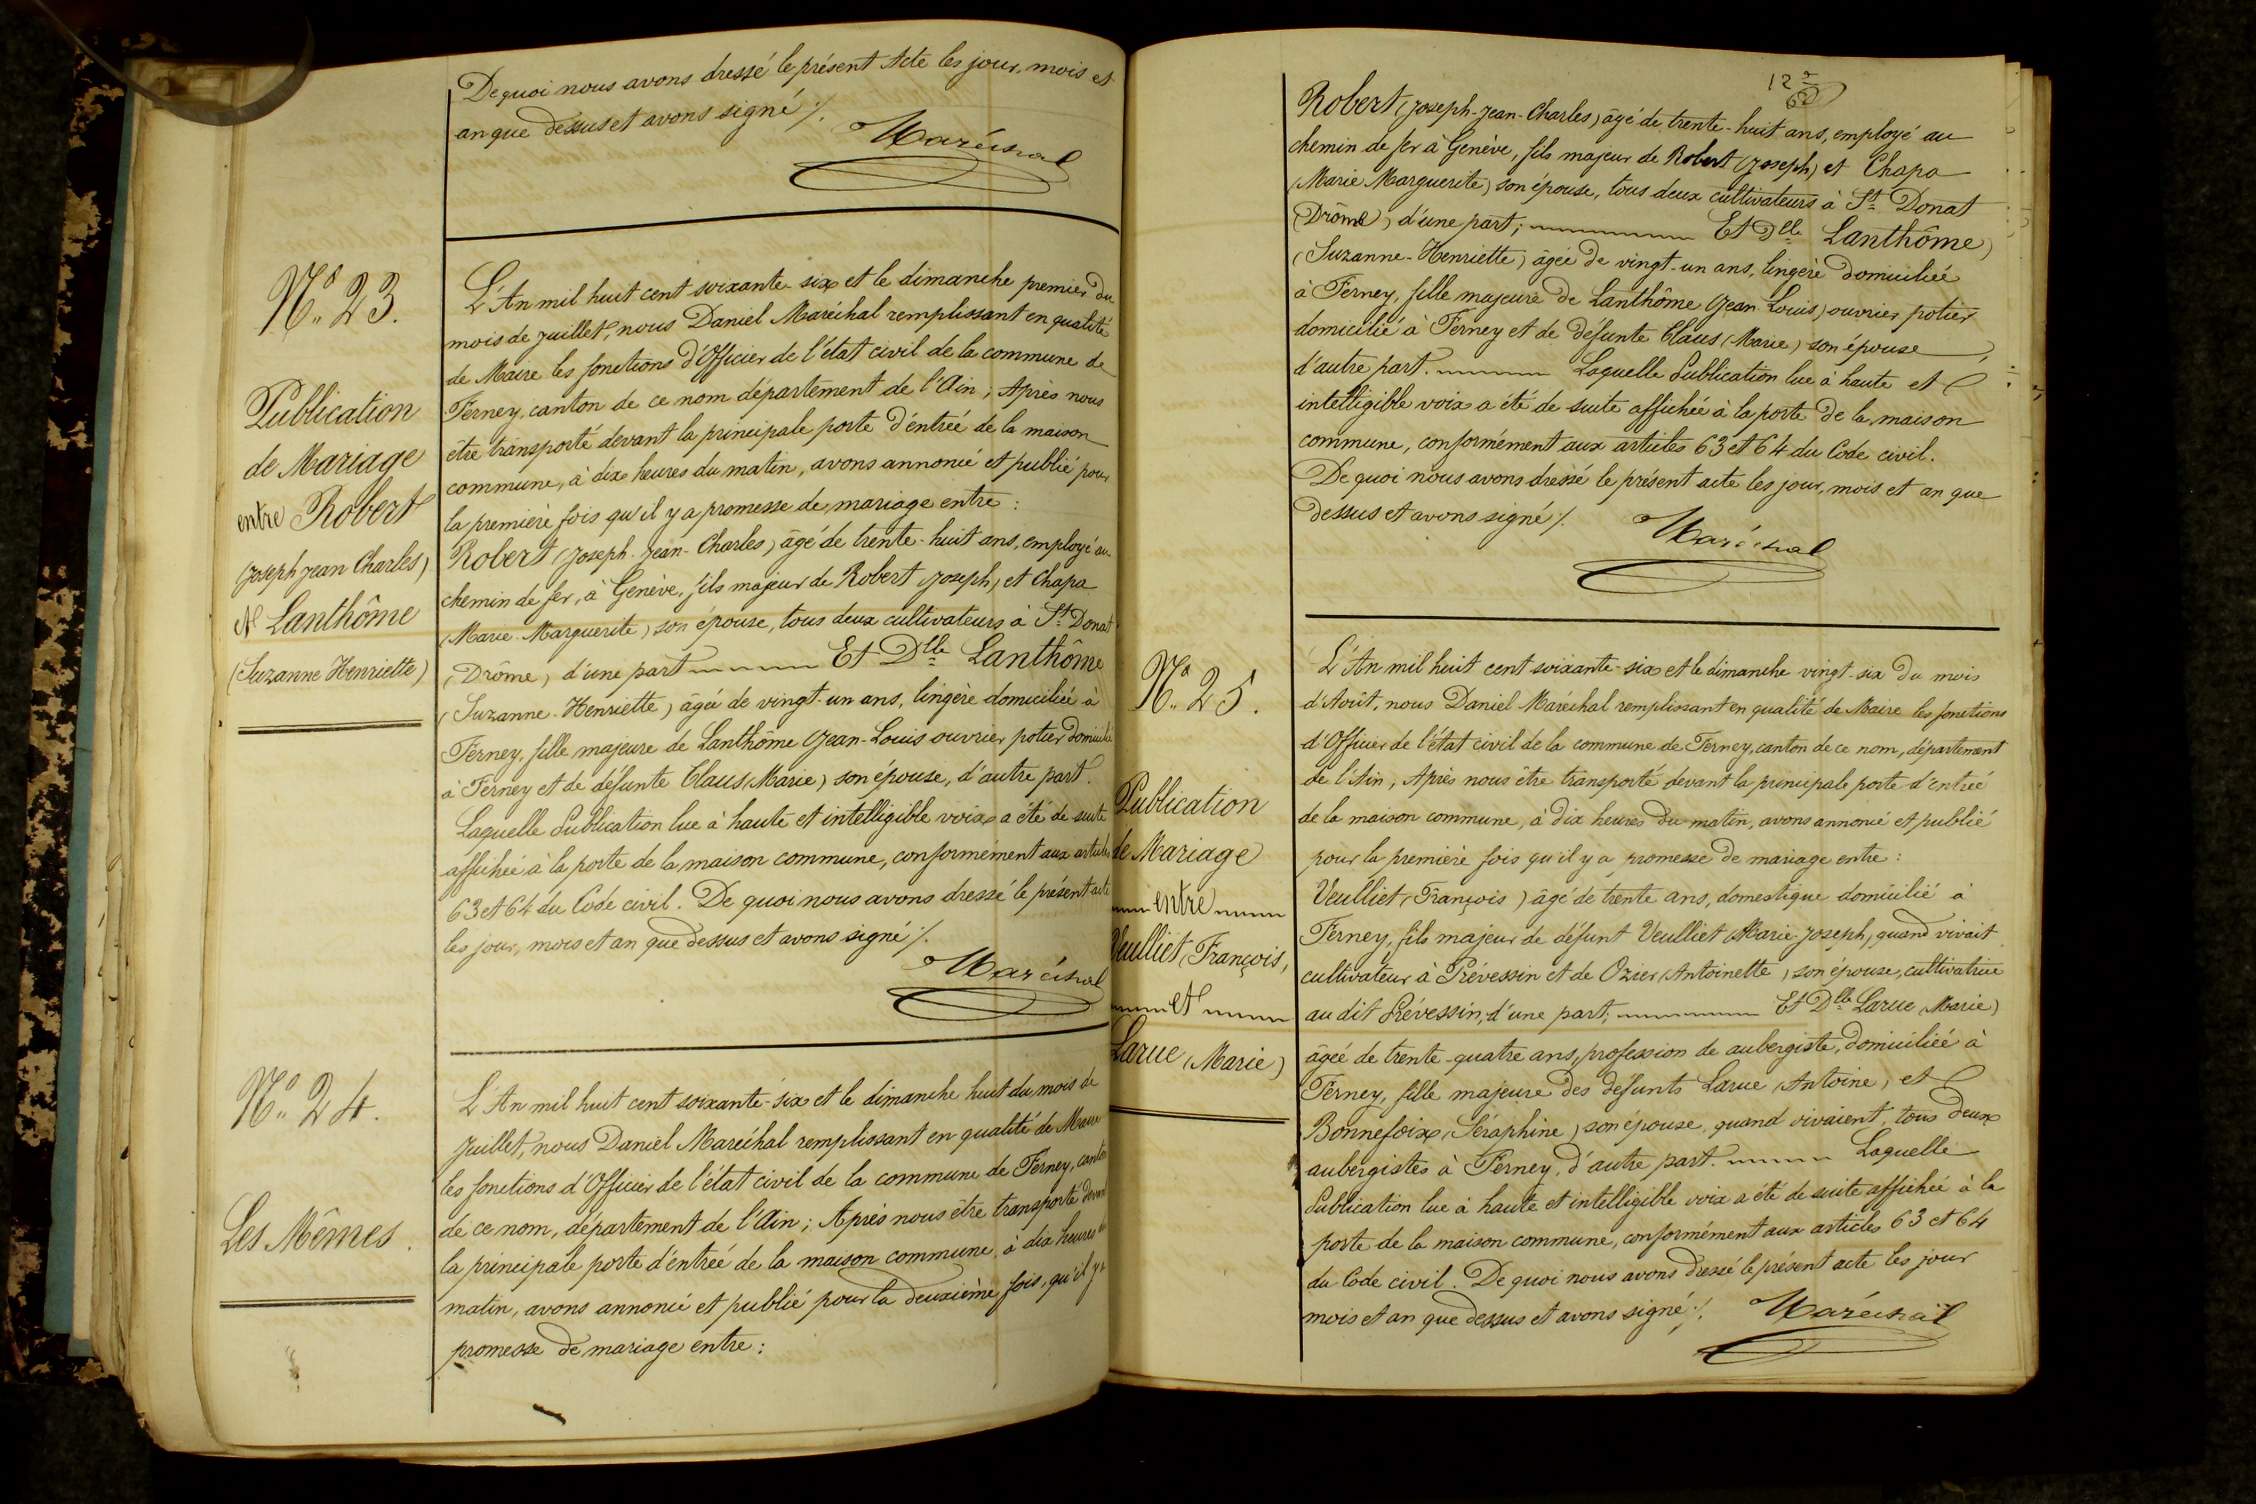 De quoi nous avons dressé le présent Acte les jour, mois et
an que dessus et avons signé ./.
Maréchal
N° 23.
Publication
de Mariage
entre Robert
(Joseph Jean Charles)
et Lanthôme
(Suzanne Henriette)
L'An mil huit cent soixante-six et le dimanche premier du
mois de Juillet, nous Daniel Maréchal remplissant en qualité
de Maire les fonctions d'Officier de l'état civil de la commune de
Ferney, canton de ce nom département de l'Ain ; Après nous
être transporté devant la principale porte d'entrée de la maison
commune, à dix heures du matin, avons annoncé et publié pour
la première fois qu'il y a promesse de mariage entre :
Robert (Joseph-Jean-Charles) âgé de trente-huit ans, employé au
chemin de fer, à Genève, fils majeur de Robert (Joseph) et Chapa
(Marie Marguerite) son épouse, tous deux cultivateurs à St Donat
(Drôme) d'une part Et Dlle Lanthôme
(Suzanne-Henriette) âgée de vingt-un ans, lingère domiciliée à
Ferney, fille majeure de Lanthôme (Jean-Louis ouvrier potier domicilié
à Ferney et de défunte Claus (Marie) son épouse, d'autre part.
Laquelle Publication lue à haute et intelligible voix a été de suite
affichée à la porte de la maison commune, conformément aux articles
63 et 64 du Code civil. De quoi nous avons dressé le présent acte
les jour, mois et an que dessus et avons signé ./.
Maréchal
N° 24.
Les Mêmes.
L'An mil huit cent soixante-six et le dimanche huit du mois de
Juillet, nous Daniel Maréchal remplissant en qualité de Maire
les fonctions d'Officier de l'état civil de la commune de Ferney, canton
de ce nom, département de l'Ain ; Après nous être transporté devant
la principale porte d'entrée de la maison commune, à dix heures du
matin, avons annoncé et publié pour la deuxième fois, qu'il y a
promesse de mariage entre :
12
Robert (Joseph-Jean-Charles) âgé de trente-huit ans, employé au
chemin de fer à Genève, fils majeur de Robert (Joseph) et Chapa
(Marie Marguerite) son épouse, tous deux cultivateurs à St Donat
(Drôme) d'une part ; Et Dlle Lanthôme
(Suzanne-Henriette) âgée de vingt-un ans, lingère domiciliée
à Ferney, fille majeure de Lanthôme (Jean Louis) ouvrier potier
domicilié à Ferney et de défunte Claus (Marie) son épouse
d'autre part. Laquelle Publication lue à haute et
intelligible voix a été de suite affichée à la porte de la maison
commune, conformément aux articles 63 et 64 du Code civil.
De quoi nous avons dressé le présent acte les jour, mois et an que
dessus et avons signé ./.
Maréchal
N° 25.
Publication
de Mariage
entre
Veulliet (François,
et
Larue (Marie)
L'An mil huit cent soixante-six et le dimanche vingt-six du mois
d'Août, nous Daniel Maréchal remplissant en qualité de Maire les fonctions
d'Officier de l'état civil de la commune de Ferney, canton de ce nom, département
de l'Ain, Après nous être transporté devant la principale porte d'entrée
de la maison commune, à dix heures du matin, avons annoncé et publié
pour la première fois qu'il y a promesse de mariage entre :
Veulliet (François) âgé de trente ans, domestique domicilié à
Ferney, fils majeur de défunt Veulliet (Marie-Joseph, quand vivait
cultivateur à Prévessin et de Ozier (Antoinette) son épouse, cultivatrice
au dit Prévessin, d'une part, Et Dlle Larue (Marie)
âgée de trente-quatre ans, profession de aubergiste, domiciliée à
Ferney, fille majeure des défunts Larue (Antoine, et
Bonnefoix (Séraphine) son épouse, quand vivaient, tous deux
aubergistes à Ferney, d'autre part. Laquelle
Publication lue à haute et intelligible voix a été de suite affichée à la
porte de la maison commune, conformément aux articles 63 et 64
du Code civil. De quoi nous avons dressé le présent acte les jour
mois et an que dessus et avons signé ./. Maréchal